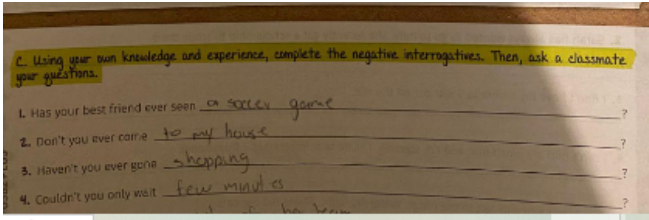 C. Using your own knowledge and experience, complete the negative interrogatives. Then, ask a classmate
your questions.
1. Has your best friend ever seen a soccer game ?
2. Don't you ever come to my house ?
3. Haven't you ever gone shopping ?
4. Couldn't you only wait few minutes ?